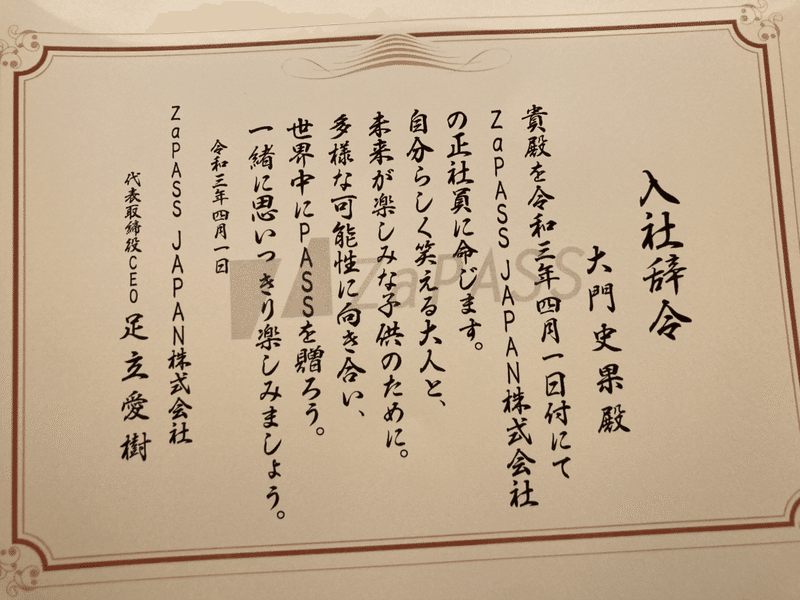 入社辞令
大門史果殿
貴殿を令和三年四月一日付にて
ZaPASS JAPAN株式会社
の正社員に命じます。
自分らしく笑える大人と、
未来が楽しみな子供のために。
多様な可能性に向き合い、
世界中にPASSを贈ろう。
一緒に思いっきり楽しみましょう。
令和三年四月一日
ZaPASS JAPAN株式会社
代表取締役CEO 足立愛樹
ZaPASS